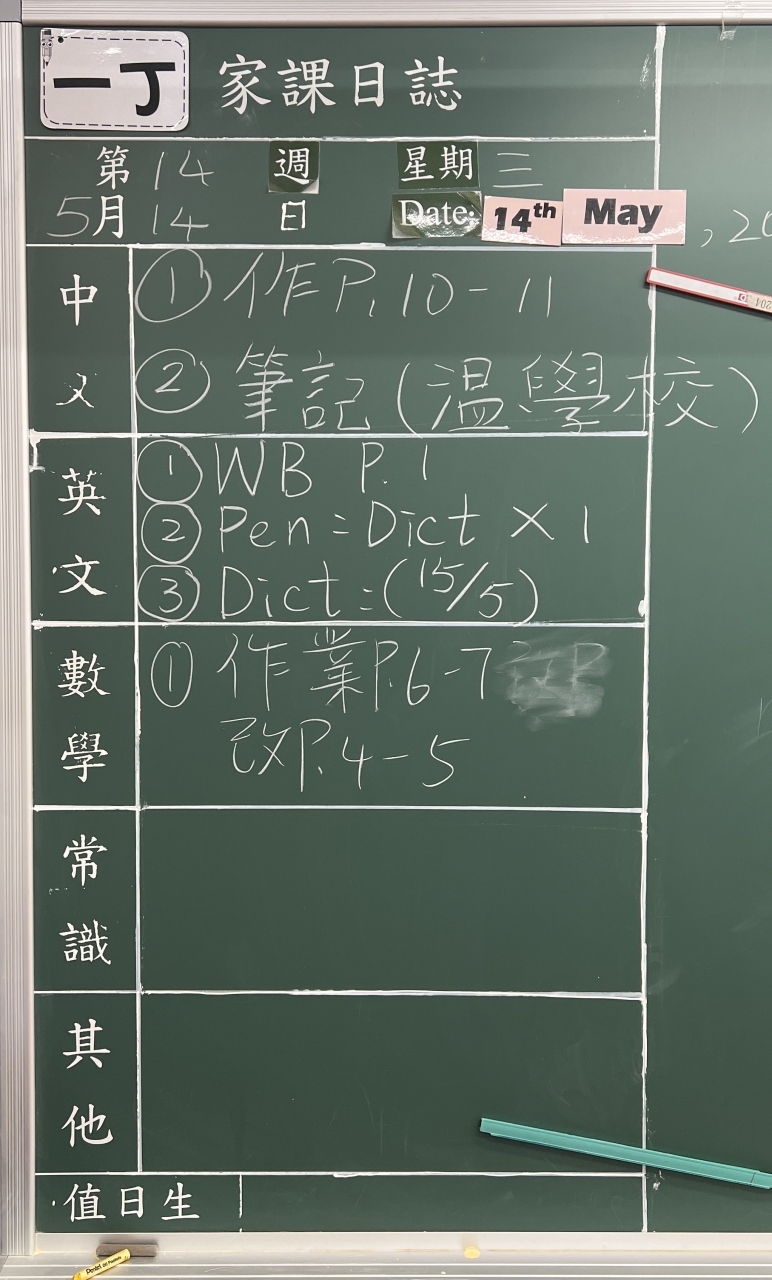 一丁 家課日誌
第 14 週 星期 三
5月 14 日 Date: 14th May , 20
中文
① 作P. 10-11
② 筆記(温學校)
英文
① WB P. 1
② Pen = Dict × 1
③ Dict = (15/5)
數學
① 作業P.6-7
改P.4-5
常識
其他
值日生
Pentel